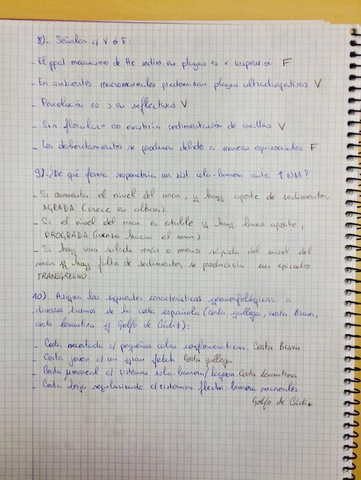 8).- Señalar c/ V ó F:
- El ppal mecanismo de tte sedim. en playas es x suspensión F
- En ambientes macromareales predominan playas ultradisipativas V
- Percolación es > en reflectivas V
- Sin floculac= no existiría sedimentación de arcillas V
- Los desbordamientos se producen debido a mareas equinocciales F
9).- ¿De qué forma respondería un sist. isla-barrera ante ↑ NM?
- Si aumenta el nivel del mar, y hay aporte de sedimentos,
AGRADA (crece en altura).
- Si el nivel del mar es estable y hay buen aporte,
PROGRADA (avanza hacia el mar)
- Si hay una subida más o menos rápida del nivel del
mar y hay falta de sedimentos, se produciría un episodio
TRANSGRESIVO.
10).- Asigna las siguientes características geomorfológicas a
diversos tramos de la costa española (Costa gallega, costa Brava,
costa levantina y Golfo de Cádiz):
- Costa recortada c/ pequeñas calas Costa Brava
- Costa joven c/ un gran fetch Costa gallega
- Costa micromareal c/ sistemas isla-barrera/lagoon Costa Levantina
- Costa baja regularizada c/ sistemas flecha barrera
Golfo de Cádiz